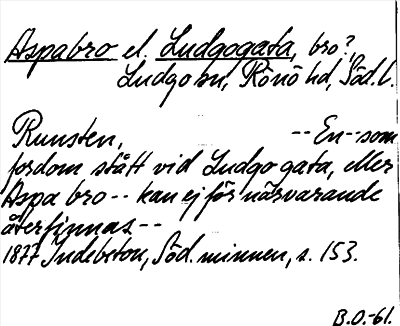 Aspabro el. Ludgogata, bro?,
Ludgo sn, Rönö hd, Söd.l.
Runsten, -- En -- som
fordom stått vid Ludgo gata, eller
Aspa bro -- kan ej för närvarande
återfinnas --
1877 Indebetou, Söd. minnen, s. 153.
B.O.-61.